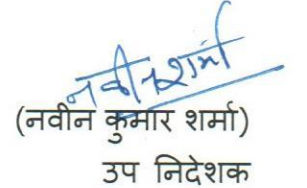 नवीन शर्मा
(नवीन कुमार शर्मा)
उप निदेशक